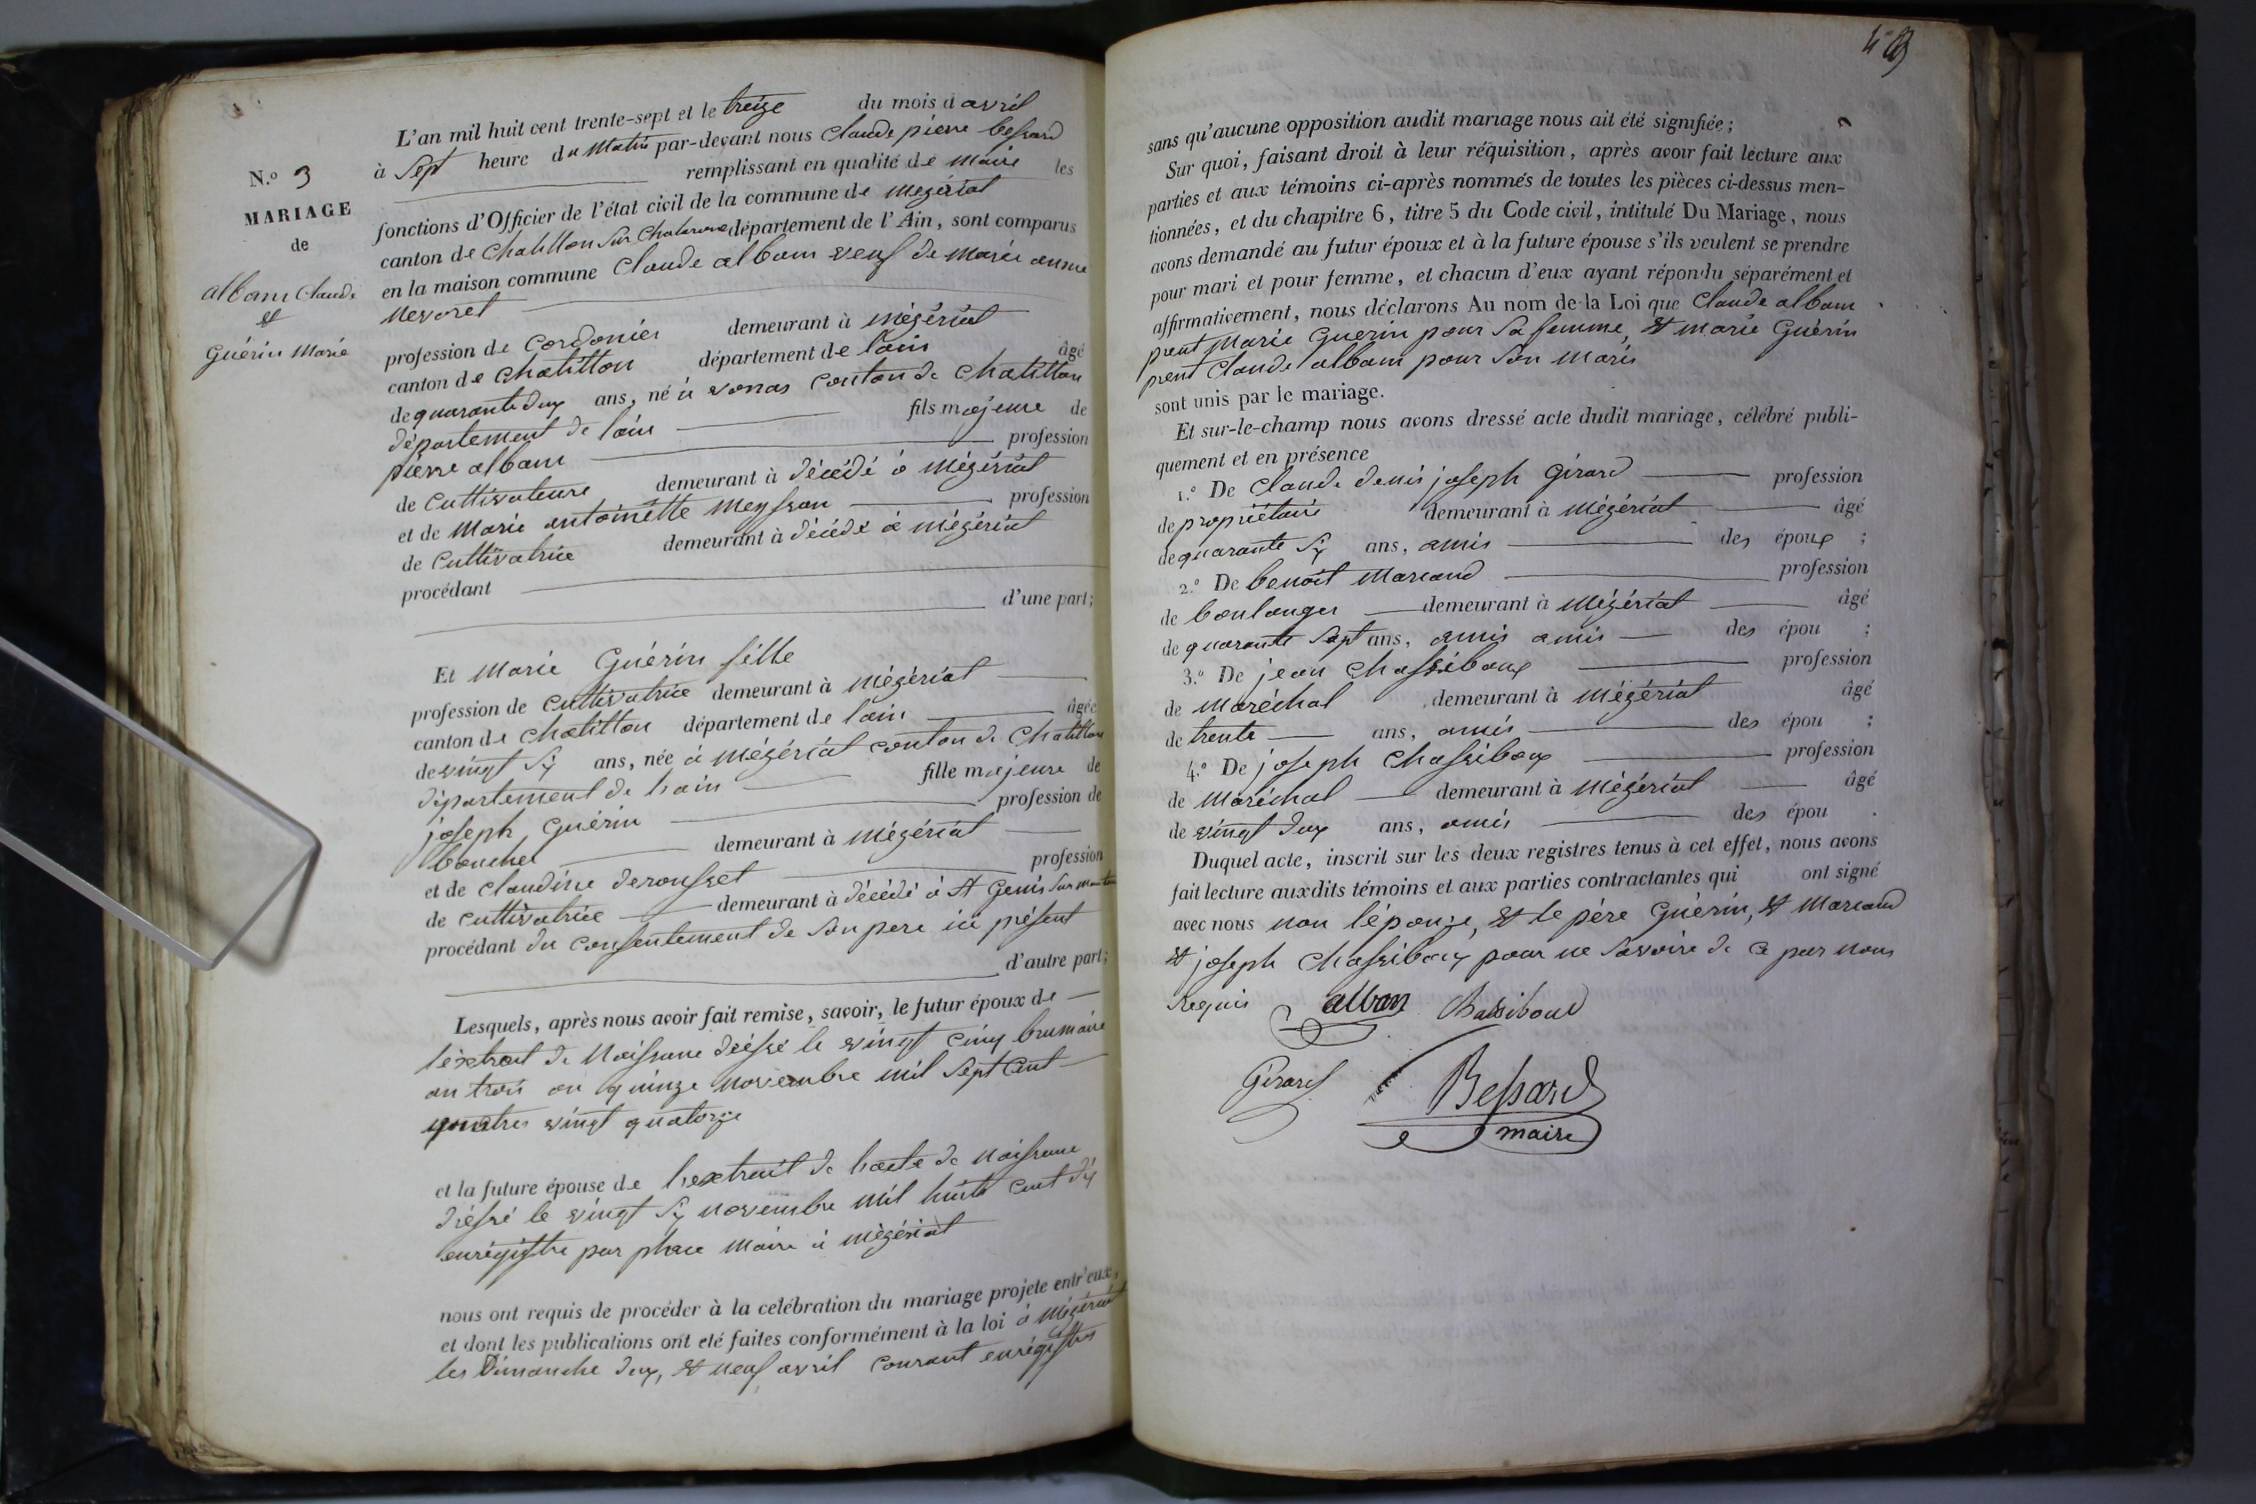 N.º 3
MARIAGE
de
albam Claude
et
Guérin Marie
L'an mil huit cent trente-sept et le treize du mois d avril
à Sept heure du Matin par-devant nous Claude pierre bessard
remplissant en qualité de Maire les
fonctions d'Officier de l'état civil de la commune de mégériat
canton de Chatillon Sur Chalaronne département de l'Ain, sont comparus
en la maison commune Claude albam veuf de Marie anne
Nevoret
profession de Cordonier demeurant à mégériat
canton de chatillon département de lain âgé
de quarante dux ans, né à vonas conton de Chatillon
département de lain fils majeure de
pierre albam profession
de Cultivateure demeurant à décédé à Mégériat
et de Marie antoinette Meysson profession
de Cultivatrice demeurant à décédé à mégériat
procédant
d'une part;
Et Marie Guérin fille
profession de Cultivatrice demeurant à mégériat
canton de chatillon département de lain âgée
de vingt six ans, née à mégériat conton de Chatillon
département de lain fille majeure de
joseph Guérin profession de
boucher demeurant à mégériat
et de claudine derousset profession
de Cultivatrice demeurant à décédé à St Genis Sur Menton
procédant du Consentement de Son pere ici présent
d'autre part;
Lesquels, après nous avoir fait remise, savoir, le futur époux de
l'extrait de Naissance dréssé le vingt cinq brumaire
an trois ou quinze novembre mil Sept Cent
quatres vingt quatorze
et la future épouse de l'extrait de lacte de Naissance
dréssé le vingt six novembre mil huit cent dix
enrégistre par phace Maire à mégériat
nous ont requis de procéder à la célébration du mariage projeté entr'eux,
et dont les publications ont été faites conformément à la loi à Mégériat
les Dimanche dux, et neuf avril Courant enrégistres
4
sans qu'aucune opposition audit mariage nous ait été signifiée;
Sur quoi, faisant droit à leur réquisition, après avoir fait lecture aux
parties et aux témoins ci-après nommés de toutes les pièces ci-dessus men-
tionnées, et du chapitre 6, titre 5 du Code civil, intitulé Du Mariage, nous
avons demandé au futur époux et à la future épouse s'ils veulent se prendre
pour mari et pour femme, et chacun d'eux ayant répondu séparément et
affirmativement, nous déclarons Au nom de la Loi que Claude albam
prent Marie Guerin pour Sa femme, et marie Guérin
prent Claude albam pour Son Maris
sont unis par le mariage.
Et sur-le-champ nous avons dressé acte dudit mariage, célébré publi-
quement et en présence
1.º De Claude denis joseph Girard profession
de propriétaire demeurant à Mégériat âgé
de quarante six ans, amis des époux ;
2.º De benoit Marcaud profession
de boulanger demeurant à Mégériat âgé
de quarante Sept ans, amis amis des épou ;
3.º De jean Chassiboux profession
de Maréchal demeurant à Mégériat âgé
de trente ans, amis des épou ;
4.º De joseph Chassiboux profession
de Maréchal demeurant à Mégériat âgé
de vingt dux ans, amis des épou .
Duquel acte, inscrit sur les deux registres tenus à cet effet, nous avons
fait lecture auxdits témoins et aux parties contractantes qui ont signé
avec nous non l'épouze, et le père Guérin, et Marcaud
et joseph Chassiboux pour ne Savoire de ce par nous
Requis alban Chassiboud
Girard
Bessard
maire